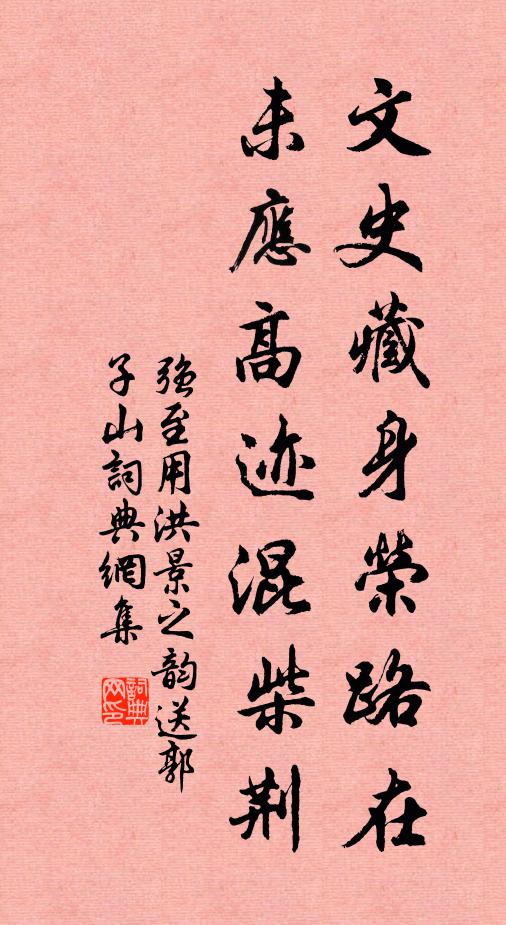 文史藏身榮路在
未應高迹混柴荆
強至用洪景之韵送郭
子山詞典網集
詞典網印